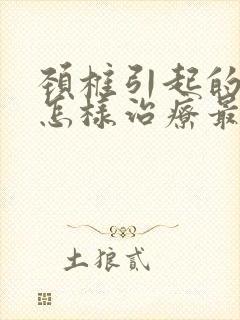 頚椎引起的
怎樣治療最
土狼貳